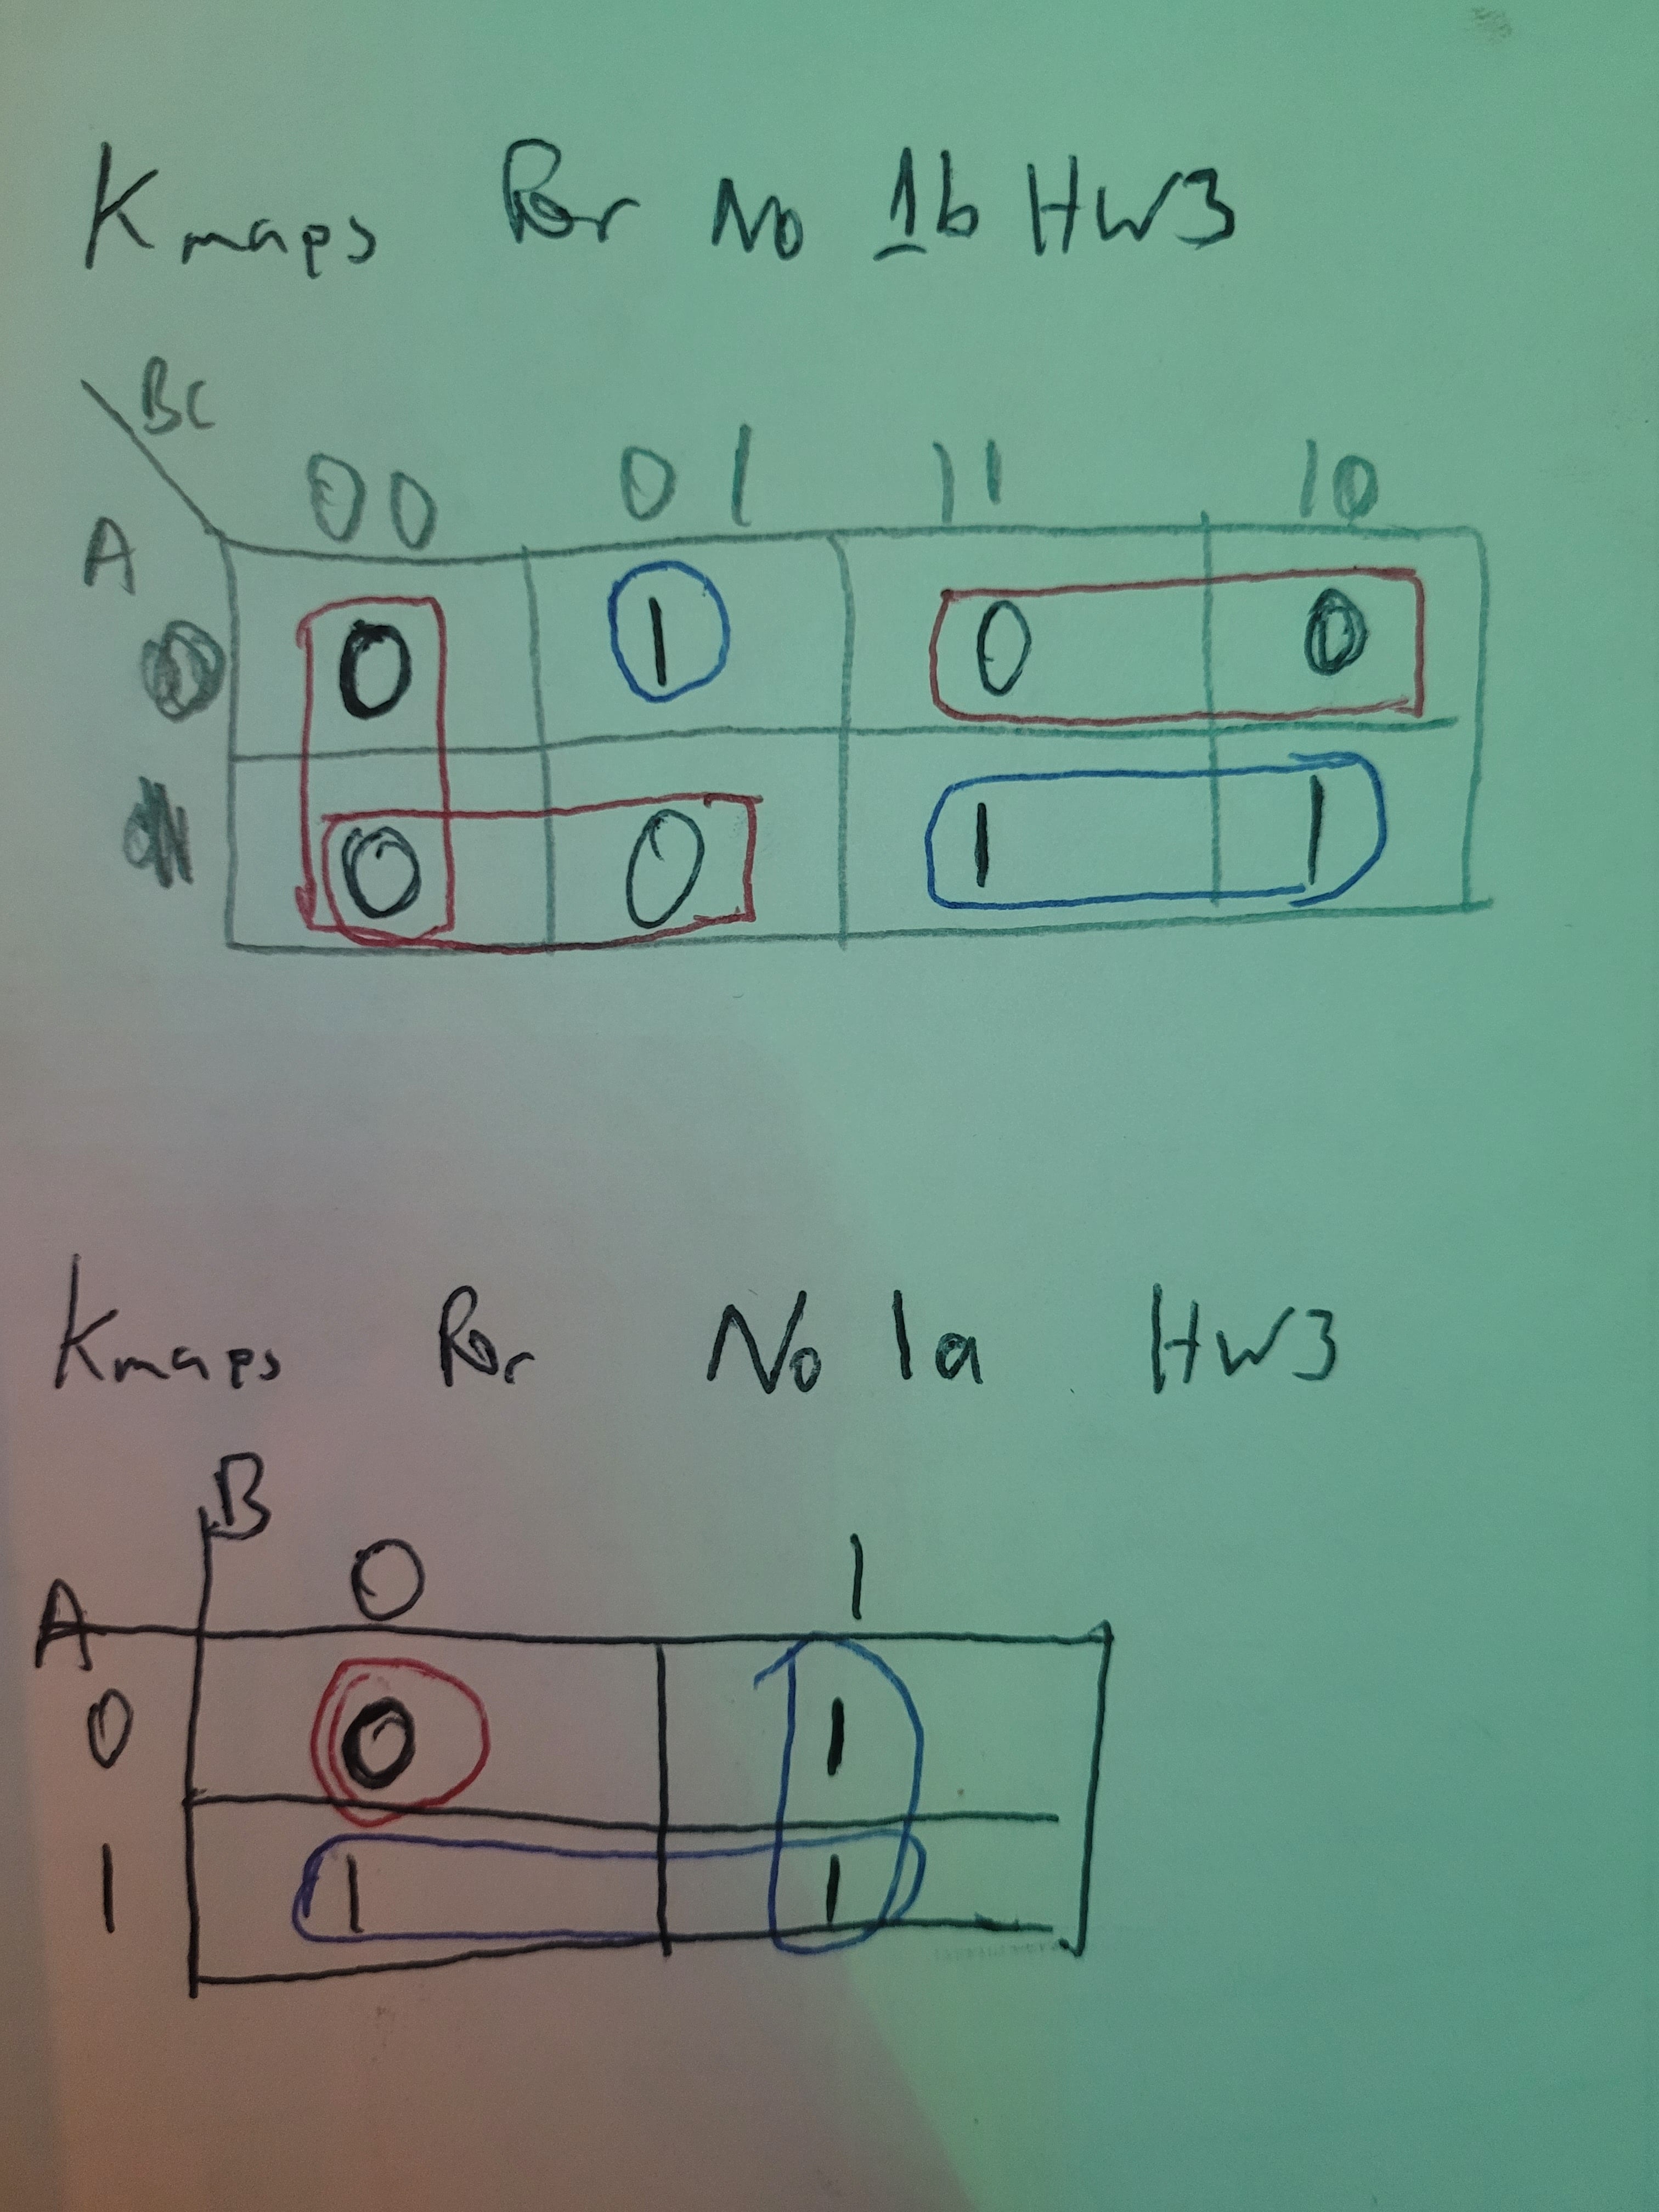 Kmaps For No 1b HW3
BC
00 01 11 10
A
0 0 1 0 0
1 0 0 1 1
Kmaps For No 1a HW3
B
0 1
A
0 0 1
1 1 1